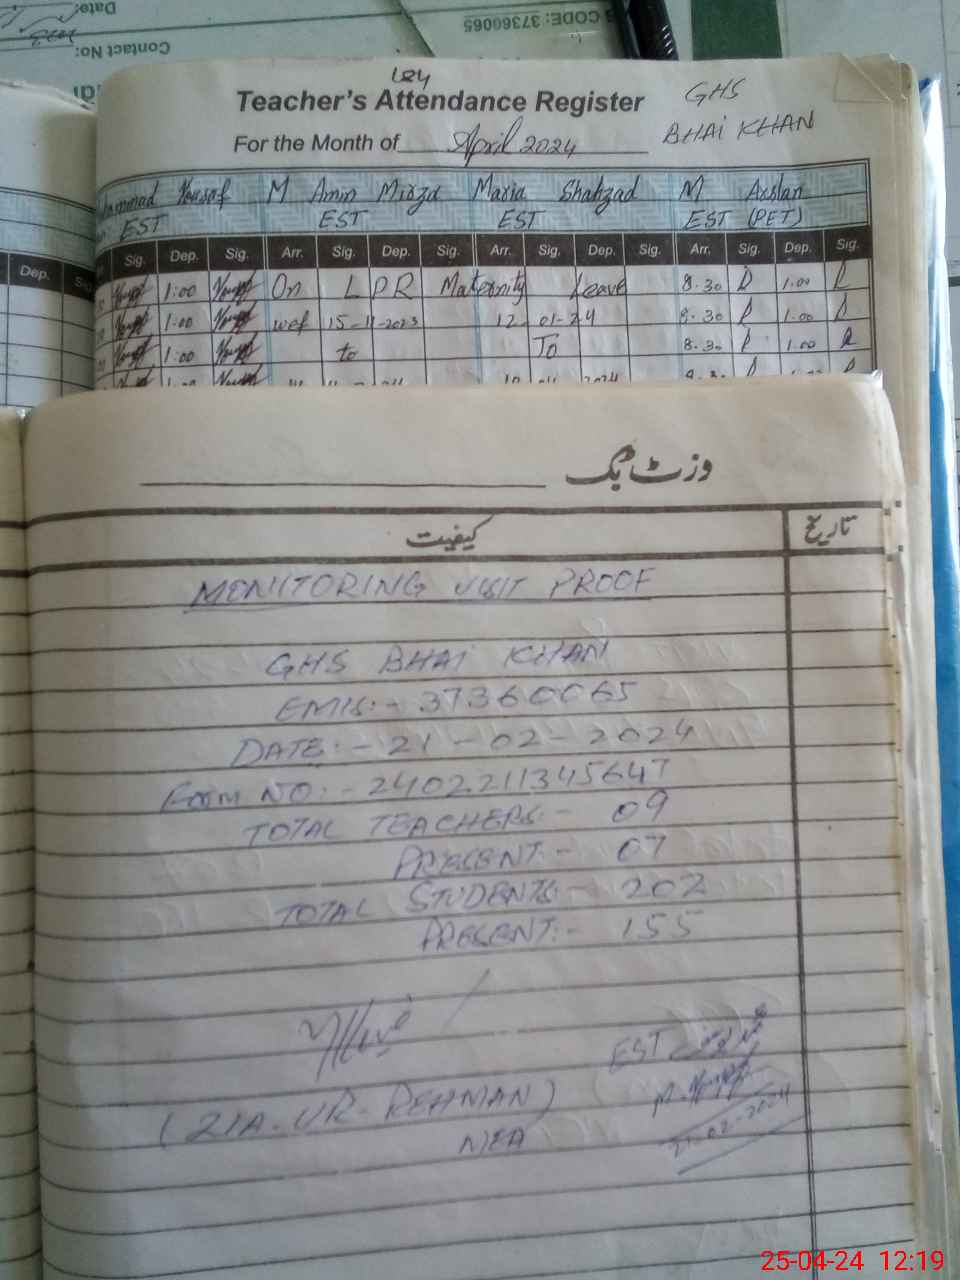 Date:
Contact No:
CODE: 37360065
124
Teacher's Attendance Register
GHS
BHAI KHAN
For the Month of April 2024
Yousaf M Amin Mirza Maria Shahzad M Arslan
EST EST EST EST (PET)
Dep. Sig. Dep. Sig. Arr. Sig. Dep. Sig. Arr. Sig. Dep. Sig. Arr. Sig. Dep. Sig.
1:00 On LPR Maternity Leave 8.30 1.00
1:00 wef 15-11-2023 12-01-24 8.30 1.00
1:00 to To 8.30 1.00
وزٹ بک
کیفیت تاریخ
MONITORING VISIT PROOF
GHS BHAI KHAN
EMIS:- 37360065
DATE:- 21-02-2024
FORM NO:- 2402211345647
TOTAL TEACHERS:- 09
PRESENT:- 07
TOTAL STUDENTS:- 202
PRESENT:- 155
EST
(ZIA-UR-REHMAN)
MEA
21-02-2024
25-04-24 12:19